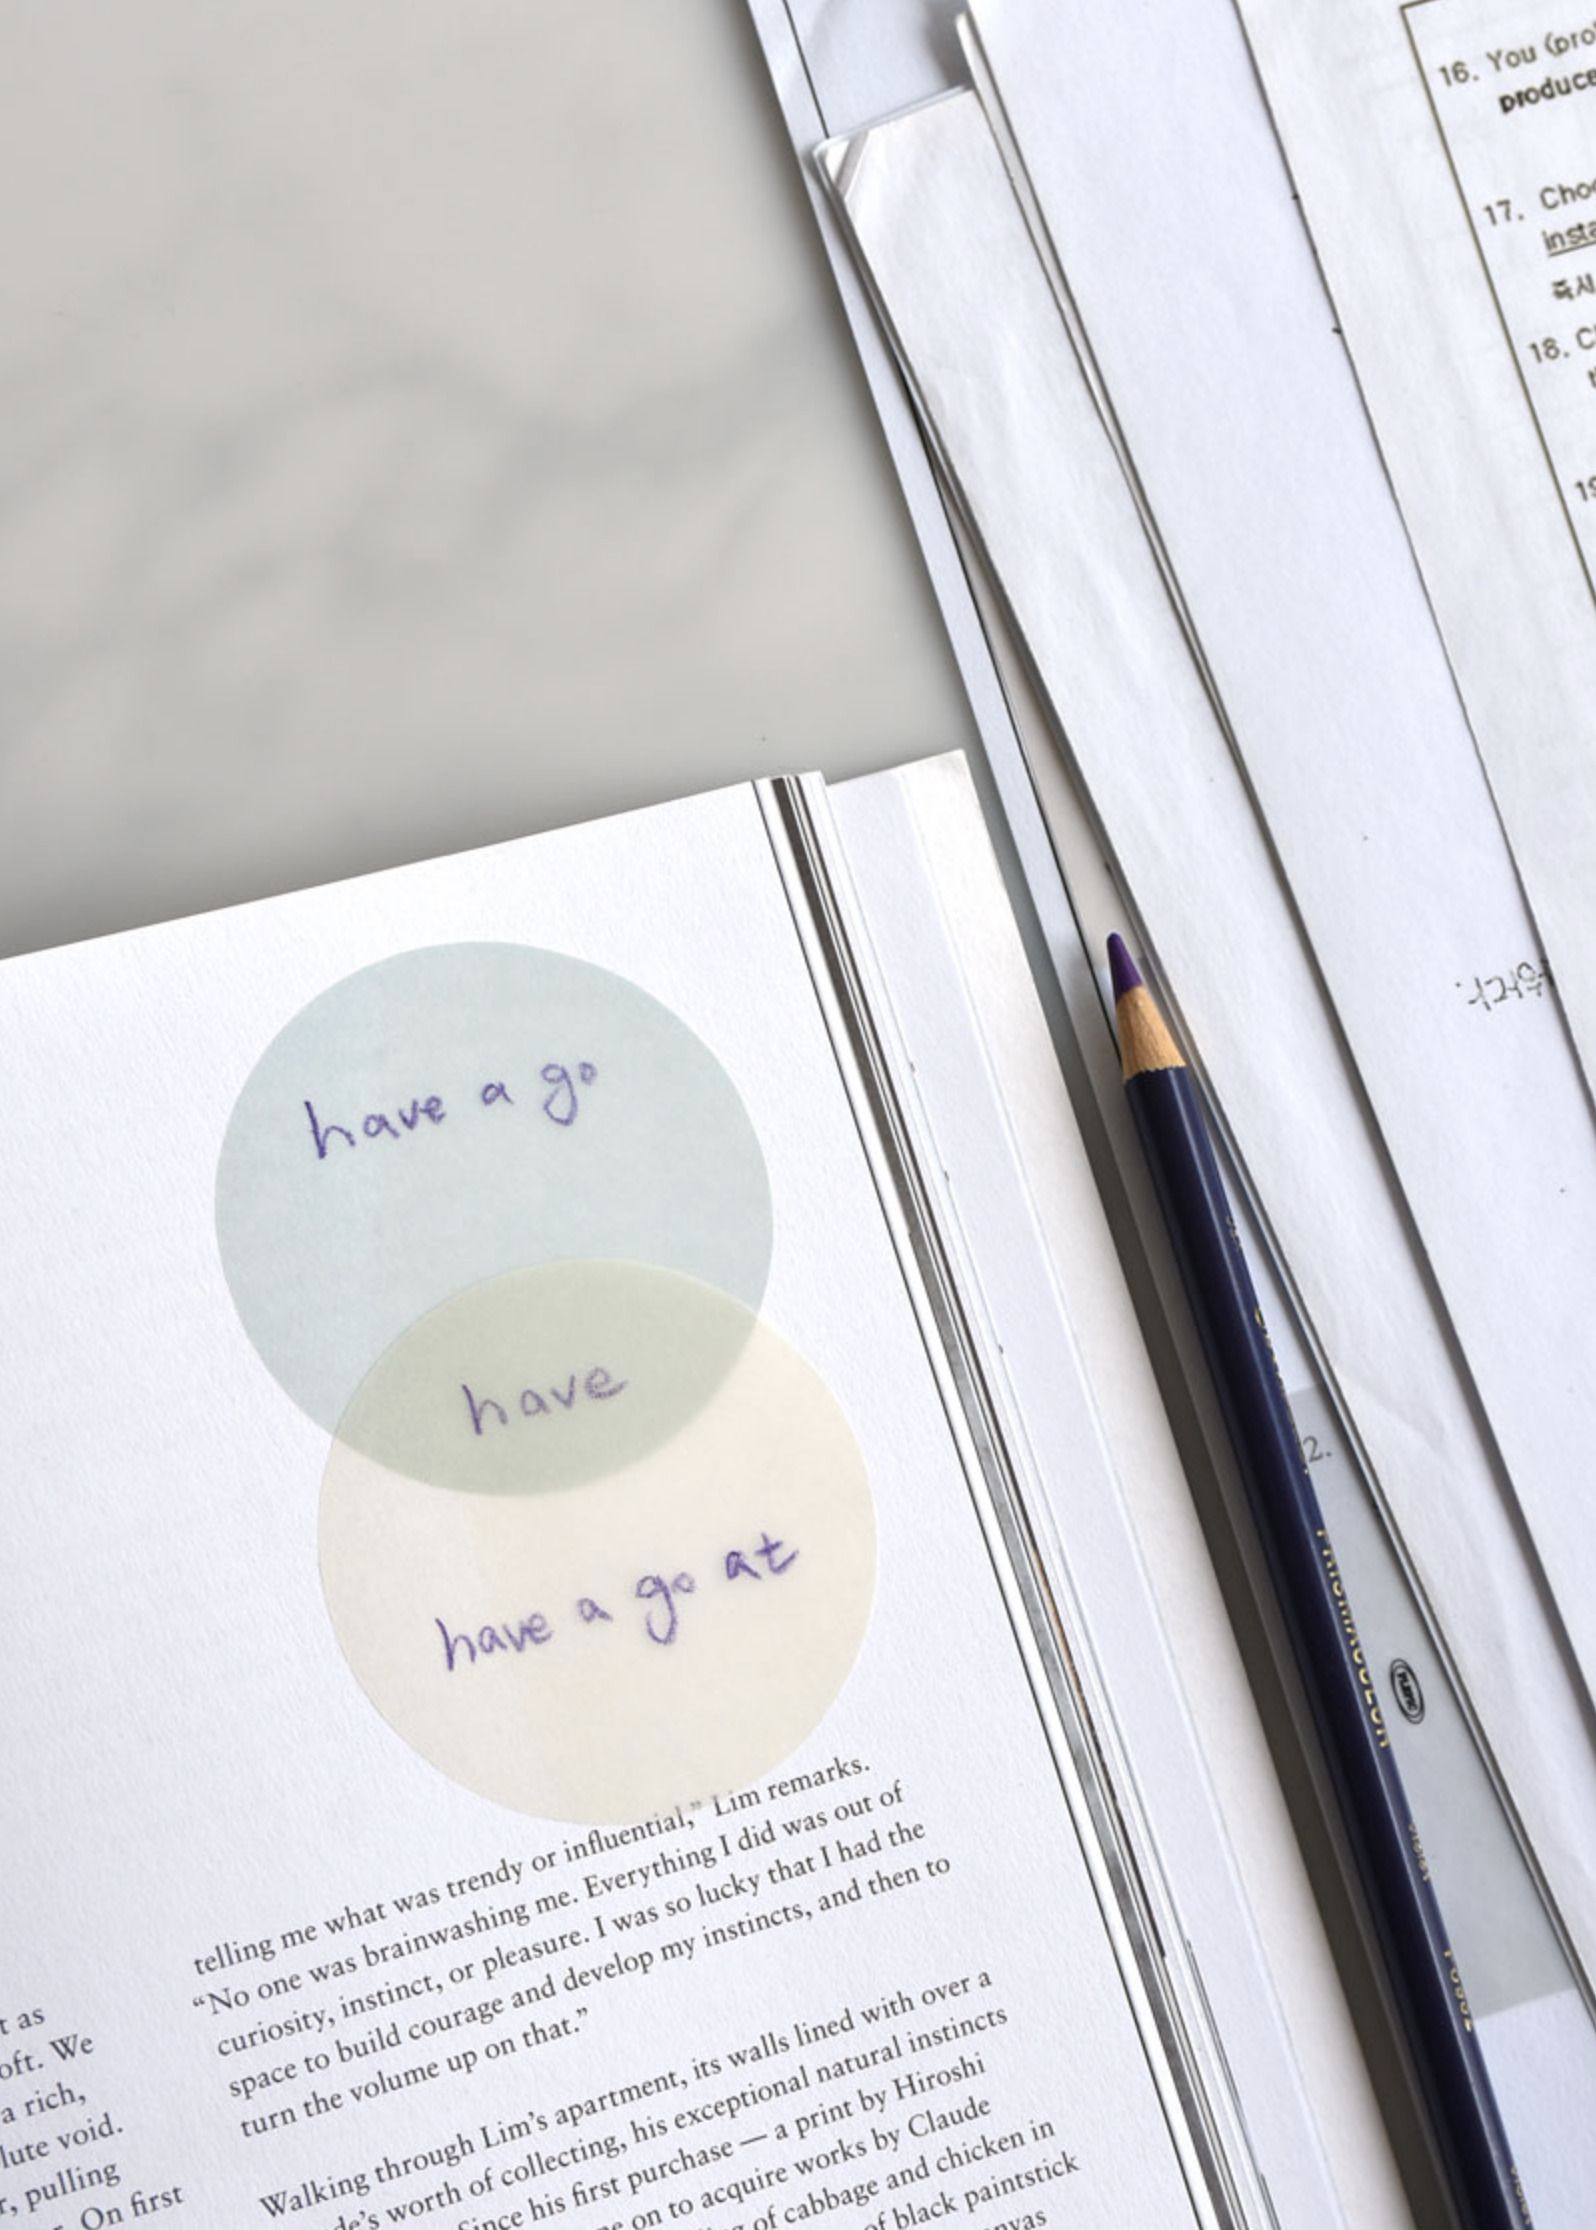 16. You (pro
produce
17. Choo
insta
즉시
18. C
19
have a go
have
have a go at
2.
PRISMACOLOR
PLEPIC
telling me what was trendy or influential,” Lim remarks.
“No one was brainwashing me. Everything I did was out of
curiosity, instinct, or pleasure. I was so lucky that I had the
space to build courage and develop my instincts, and then to
turn the volume up on that.”
Walking through Lim’s apartment, its walls lined with over a
de’s worth of collecting, his exceptional natural instincts
Since his first purchase — a print by Hiroshi
ne on to acquire works by Claude
ng of cabbage and chicken in
of black paintstick
nvas
t as
oft. We
a rich,
lute void.
r, pulling
On first